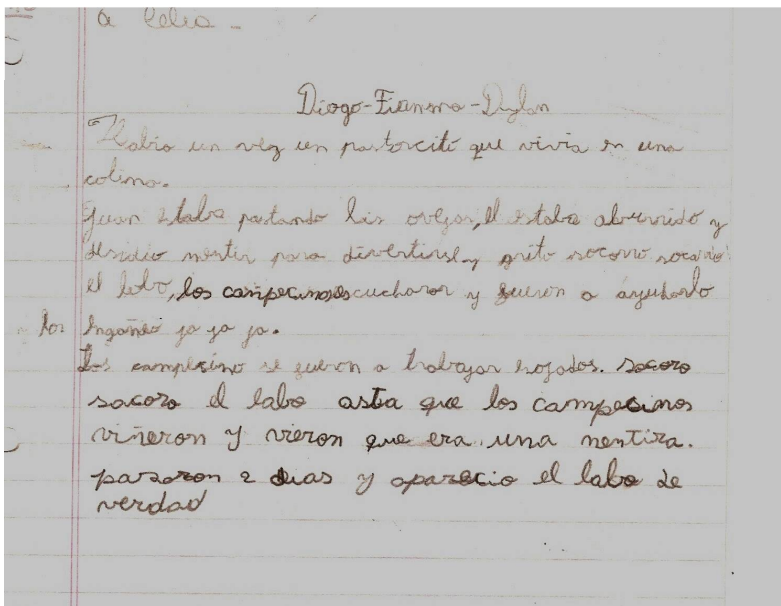 a Celia -
Diego-Fiamma-Dylan
Habia un vez un pastorcito que vivia en una
colina.
Juan estaba pastando las ovejas, el estaba aburrido y
desidio mentir para divertirse y grito socorro socorro
el lobo, los campecinos escucharon y fueron a ayudarlo
los Engañeo ja ja ja.
Los campecino se fueron a trabajar enojados. socoro
socoro el lobo asta que los campecinos
viñeron y vieron que era una mentira.
pasaron 2 dias y aparecio el lobo de
verdad